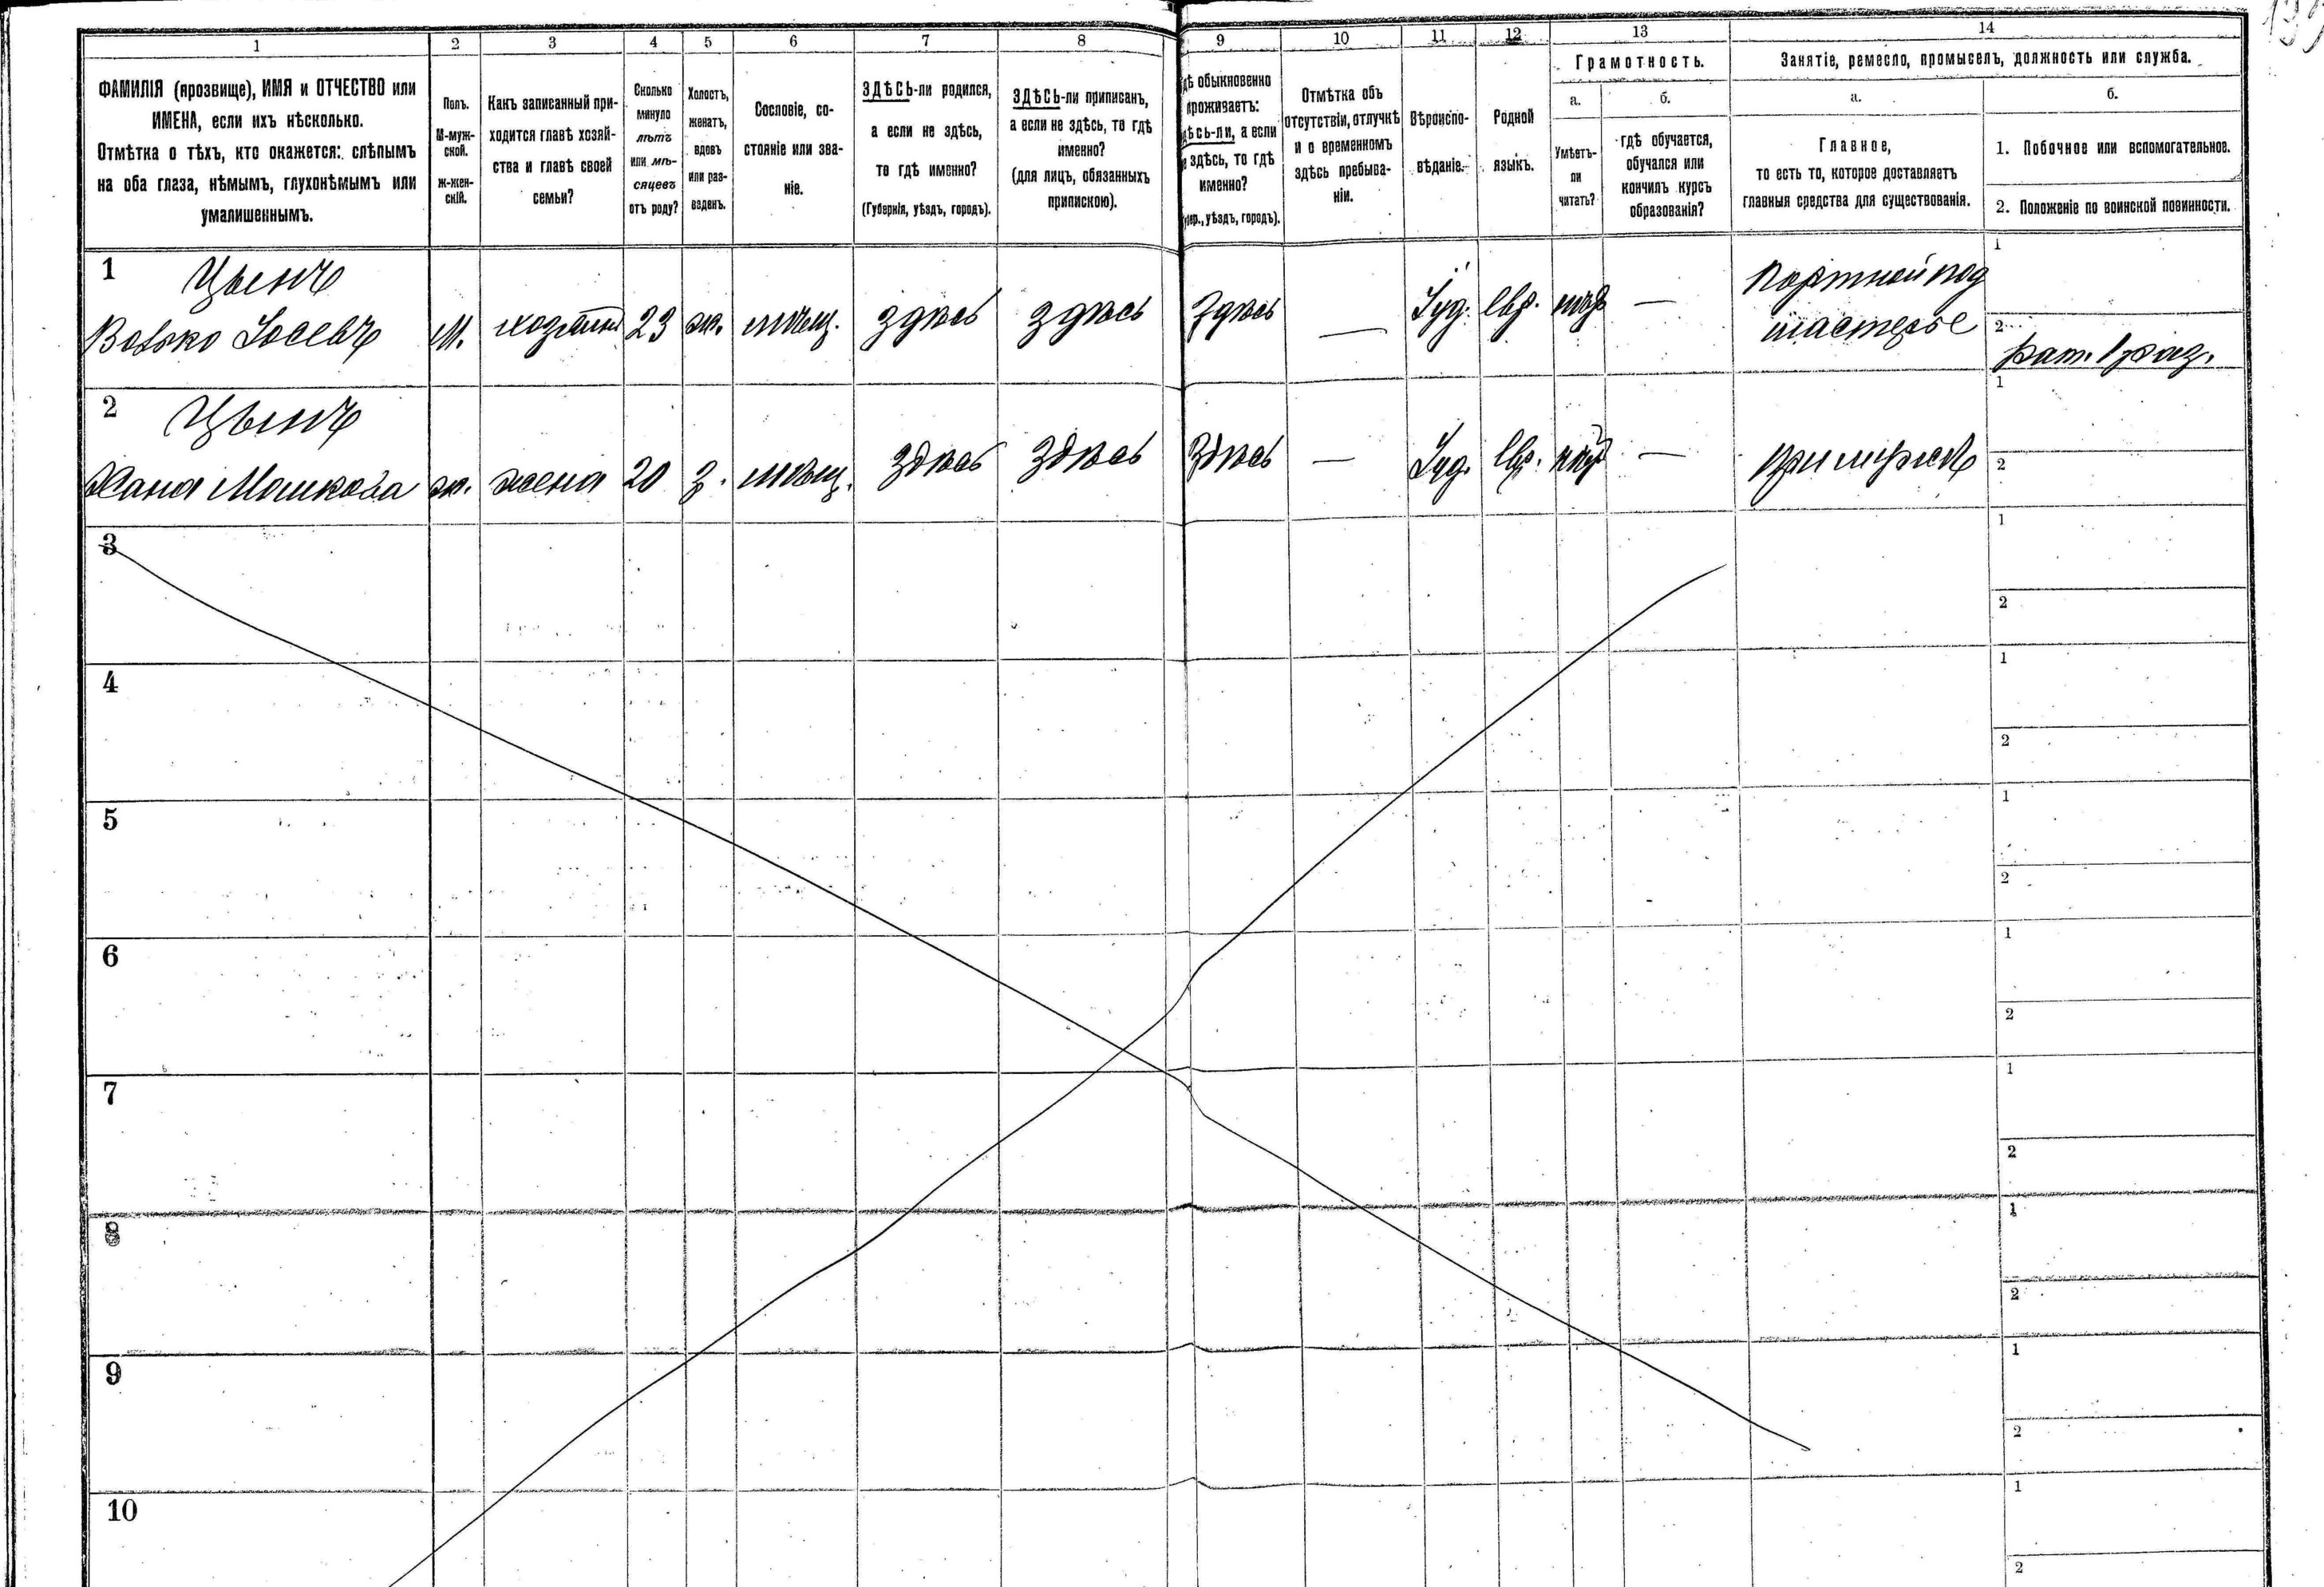 139
1
2
3
4
5
6
7
8
9
10
11
12
13
14
ФАМИЛІЯ (прозвище), ИМЯ и ОТЧЕСТВО или
ИМЕНА, если ихъ нѣсколько.
Отмѣтка о тѣхъ, кто окажется: слѣпымъ
на оба глаза, нѣмымъ, глухонѣмымъ или
умалишеннымъ.
Полъ.
М-муж-
ской.
Ж-жен-
скій.
Какъ записанный при-
ходится главѣ хозяй-
ства и главѣ своей
семьи?
Сколько
минуло
лѣтъ
или мѣ-
сяцевъ
отъ роду?
Холостъ,
женатъ,
вдовъ
или раз-
веденъ.
Сословіе, со-
стояніе или зва-
ніе.
ЗДѢСЬ-ли родился,
а если не здѣсь,
то гдѣ именно?
(Губернія, уѣздъ, городъ).
ЗДѢСЬ-ли приписанъ,
а если не здѣсь, то гдѣ
именно?
(для лицъ, обязанныхъ
припискою).
дѣ обыкновенно
проживаетъ:
дѣсь-ли, а если
здѣсь, то гдѣ
именно?
уѣздъ, городъ).
Отмѣтка объ
отсутствіи, отлучкѣ
и о временномъ
здѣсь пребыва-
ніи.
Вѣроиспо-
вѣданіе.
Родной
языкъ.
Грамотность.
а.
Умѣетъ-
ли
читать?
б.
гдѣ обучается,
обучался или
кончилъ курсъ
образованія?
Занятіе, ремесло, промыселъ, должность или служба.
а.
Главное,
то есть то, которое доставляетъ
главныя средства для существованія.
б.
1. Побочное или вспомогательное.
2. Положеніе по воинской повинности.
1
Цынъ
Вовко М. хозяинъ 23 ж. мѣщ. здѣсь здѣсь здѣсь — Іуд. евр. —
Портной под
мастерье
1
2
рат. 1 раз.
2
Цынъ
Хана Мошкова ж. жена 20 з. мѣщ. здѣсь здѣсь здѣсь — Іуд. евр. —
при мужѣ
1
2
3
1
2
4
1
2
5
1
2
6
1
2
7
1
2
8
1
2
9
1
2
10
1
2